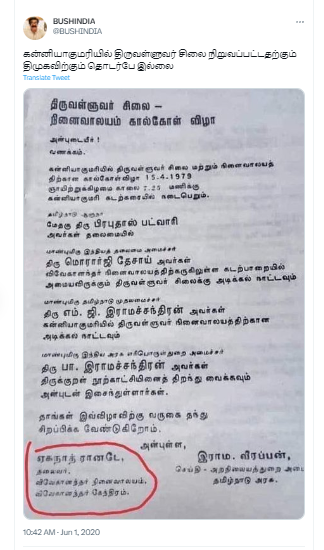 BUSHINDIA
@BUSHINDIA
கன்னியாகுமரியில் திருவள்ளுவர் சிலை நிறுவப்பட்டதற்கும்
திமுகவிற்கும் தொடர்பே இல்லை
Translate Tweet
திருவள்ளுவர் சிலை –
நினைவாலயம் கால்கோள் விழா
அன்புடையீர்!
வணக்கம்.
கன்னியாகுமரியில் திருவள்ளுவர் சிலை மற்றும் நினைவாலயத்
திற்கான கால்கோள்விழா 15.4.1979
ஞாயிற்றுக்கிழமை காலை மணிக்கு
கன்னியாகுமரி கடற்கரையில் நடைபெறும்.
தமிழ்நாடு ஆளுநர்
மேதகு திரு பிரபுதாஸ் பட்வாரி
அவர்கள் தலைமையில்
மாண்புமிகு இந்தியத் தலைமை அமைச்சர்
திரு மொரார்ஜி தேசாய் அவர்கள்
விவேகானந்தர் நினைவாலயத்திற்கருகிலுள்ள கடற்பாறையில்
அமையவிருக்கும் திருவள்ளுவர் சிலைக்கு அடிக்கல் நாட்டவும்
மாண்புமிகு தமிழ்நாடு முதலமைச்சர்
திரு எம். ஜி. இராமச்சந்திரன் அவர்கள்
கன்னியாகுமரியில் திருவள்ளுவர் நினைவாலயத்திற்கான
அடிக்கல் நாட்டவும்
மாண்புமிகு இந்திய அரசு எரிபொருள்துறை அமைச்சர்
திரு பா. இராமச்சந்திரன் அவர்கள்
திருக்குறள் நூற்காட்சியினைத் திறந்து வைக்கவும்
அன்புடன் இசைந்துள்ளார்கள்.
தாங்கள் இவ்விழாவிற்கு வருகை தந்து
சிறப்பிக்க வேண்டுகிறோம்.
அன்புள்ள,
ஏகநாத் ரானடே,
தலைவர்,
விவேகானந்தர் நினைவாலயம்,
விவேகானந்தர் கேந்திரம்.
இராம. வீரப்பன்,
செய்தி - அறநிலையத்துறை
தமிழ்நாடு அரசு.
10:42 AM · Jun 1, 2020